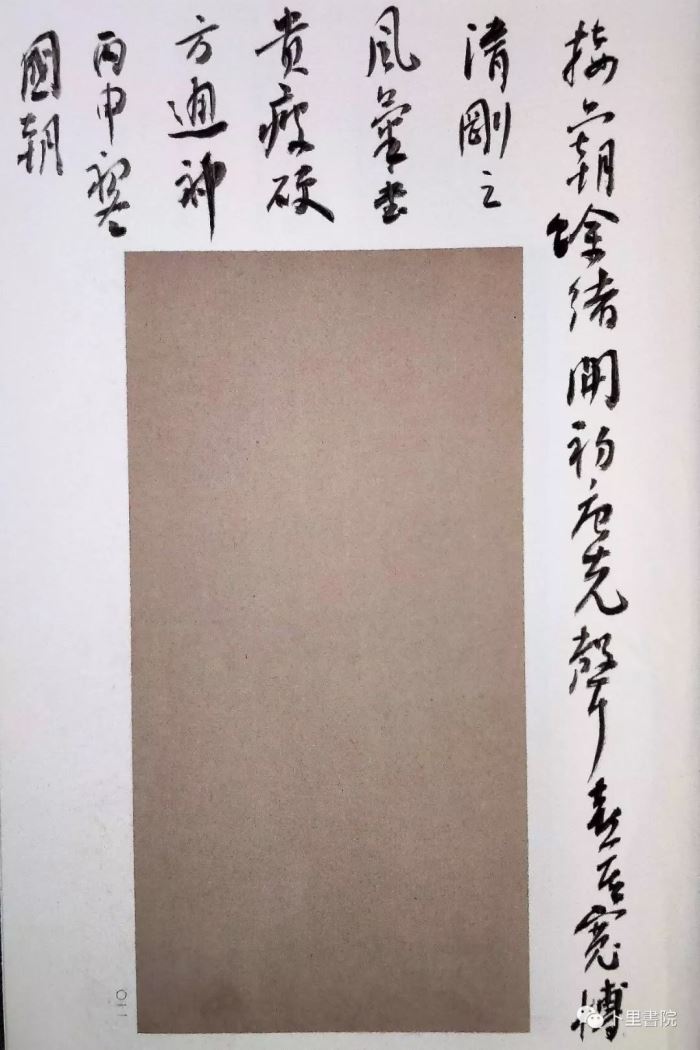 接六朝餘緒開初唐先聲喜其寬博
清剛之
風氣書
貴瘦硬
方通神
丙申
國朝
〇一一
里書院